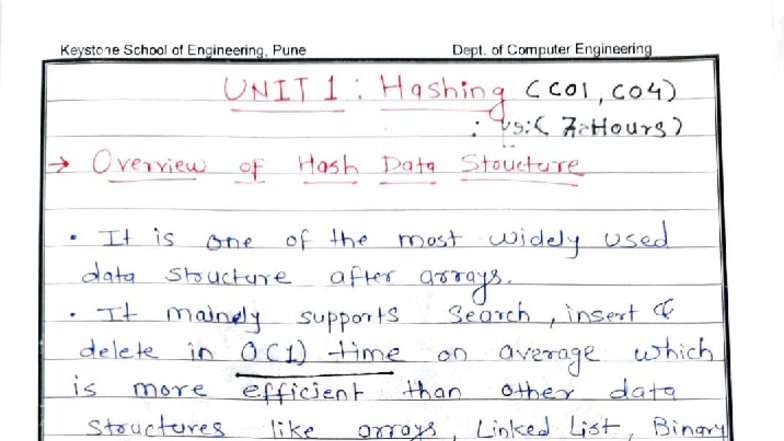 Keystone School of Engineering, Pune Dept. of Computer Engineering
UNIT 1 : Hashing (CO1, CO4)
(7 Hours)
→ Overview of Hash Data Structure
• It is one of the most widely used
data structure after arrays.
• It mainely supports search, insert &
delete in O(1) time on average which
is more efficient than other data
structures like arrays, Linked List, Binary